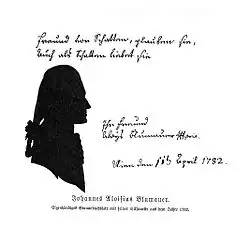 Freund von Schatten, glauben sie,
Auch als Schatten liebet sie
Ihr Freund
Aloys Blumauer
Wien den 1782.
Johannes Aloisius Blumauer.
Eigenhändiges Stammbuchblatt mit seiner Silhouette aus dem Jahre 1782.